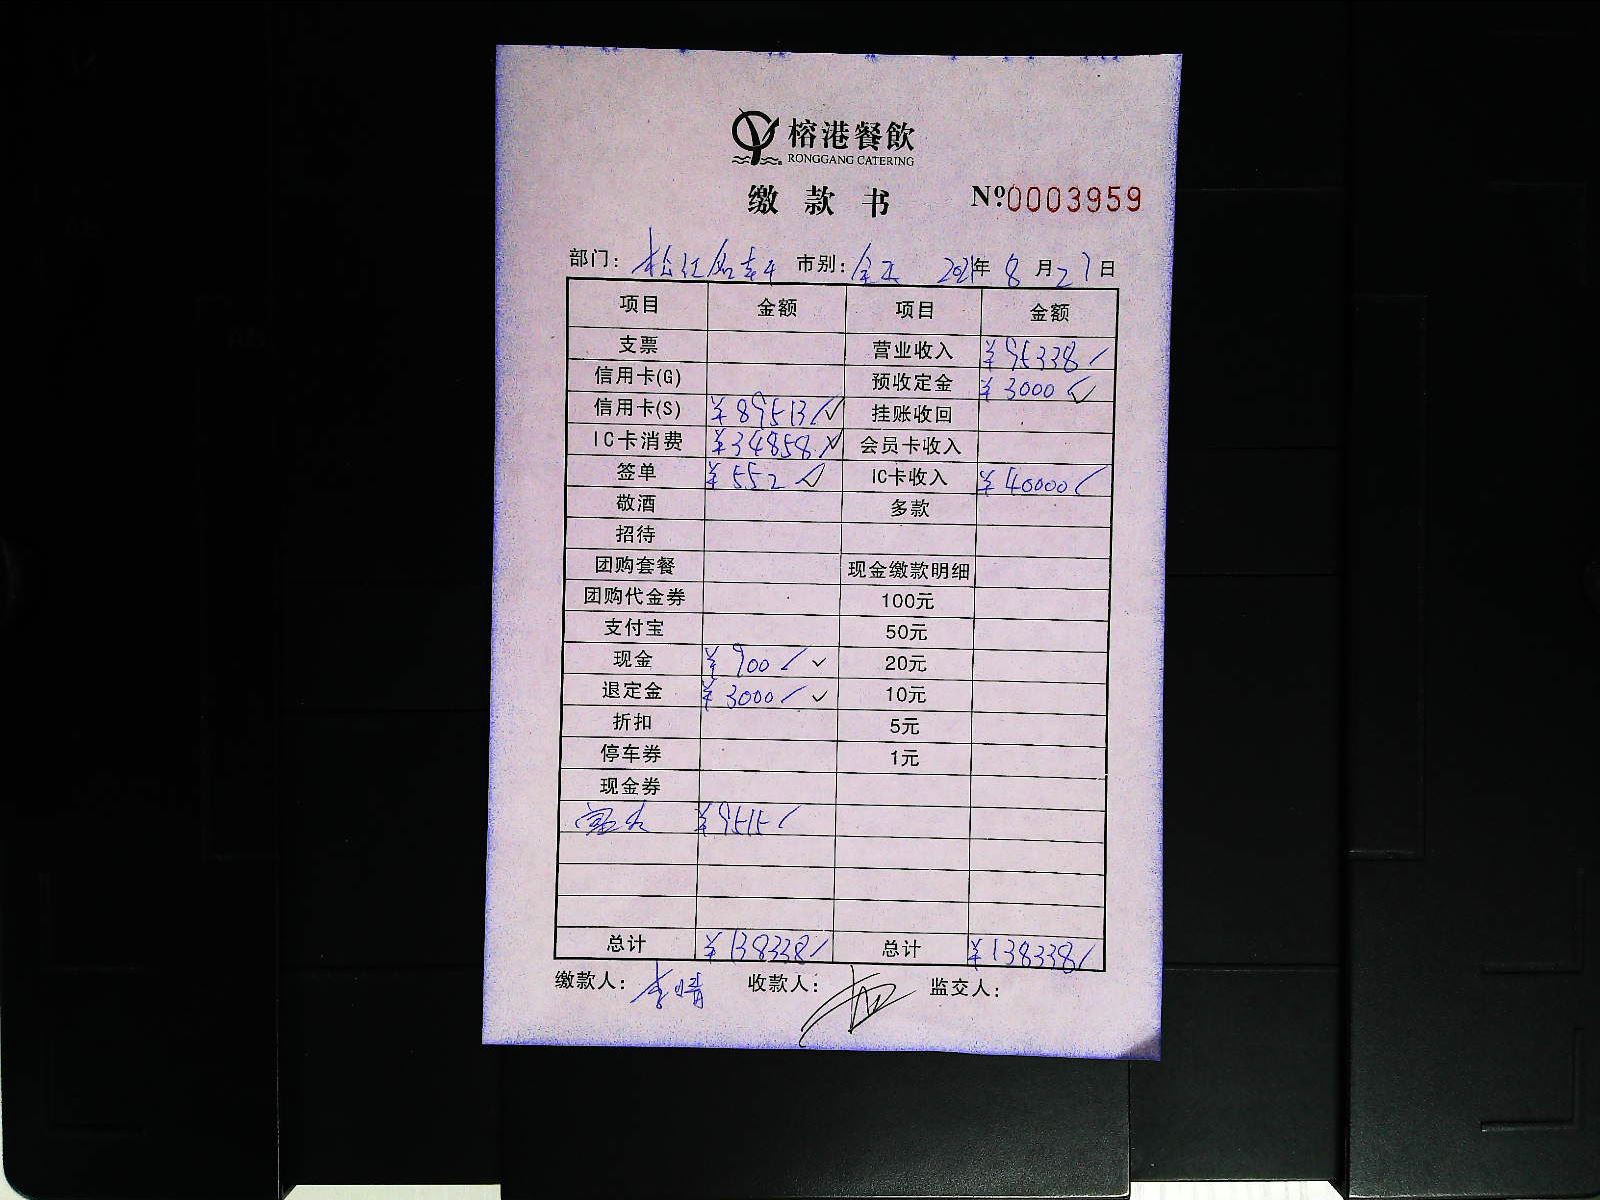 榕港餐飲
RONGGANG CATERING
缴款书 №0003959
部门： 市别：全天 2021年8月27日
项目 金额 项目 金额
支票 营业收入 ¥95338
信用卡(G) 预收定金 ¥3000
信用卡(S) ¥89513 挂账收回
IC卡消费 ¥34858 会员卡收入
签单 ¥552 IC卡收入 ¥40000
敬酒 多款
招待
团购套餐 现金缴款明细
团购代金券 100元
支付宝 50元
现金 ¥900 20元
退定金 ¥3000 10元
折扣 5元
停车券 1元
现金券
¥9515
总计 ¥138338 总计 ¥138338
缴款人：李晴 收款人： 监交人：